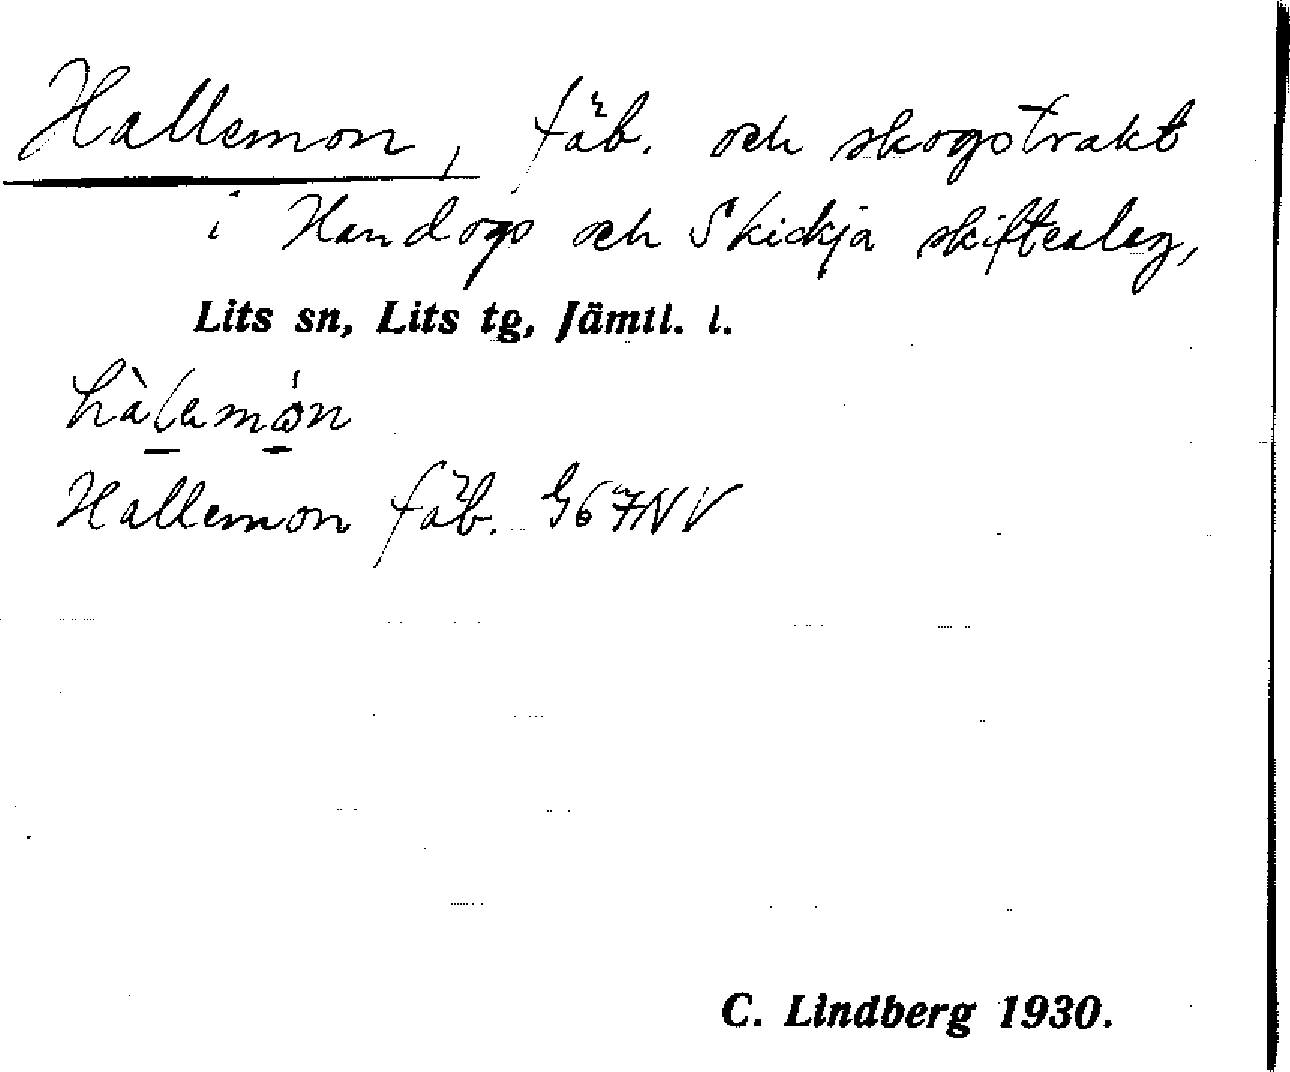 Hallemon, fäb. och skogstrakt
i Handogs och Skickja skifteslag,
Lits sn, Lits tg, Jämtl. l.
Hallemon fäb. G67NV
C. Lindberg 1930.